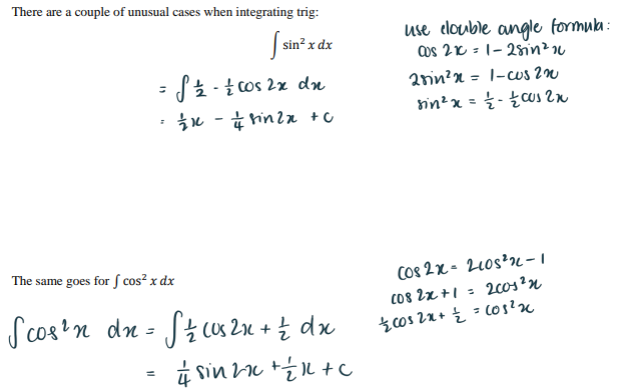 There are a couple of unusual cases when integrating trig:
∫ sin² x dx
= ∫ 1/2 - 1/2 cos 2x dx
= 1/2 x - 1/4 sin 2x + c
use double angle formula:
cos 2x = 1 - 2sin² x
2sin² x = 1 - cos 2x
sin² x = 1/2 - 1/2 cos 2x
The same goes for ∫ cos² x dx
∫ cos² x dx = ∫ 1/2 cos 2x + 1/2 dx
= 1/4 sin 2x + 1/2 x + c
cos 2x = 2cos² x - 1
cos 2x + 1 = 2cos² x
1/2 cos 2x + 1/2 = cos² x